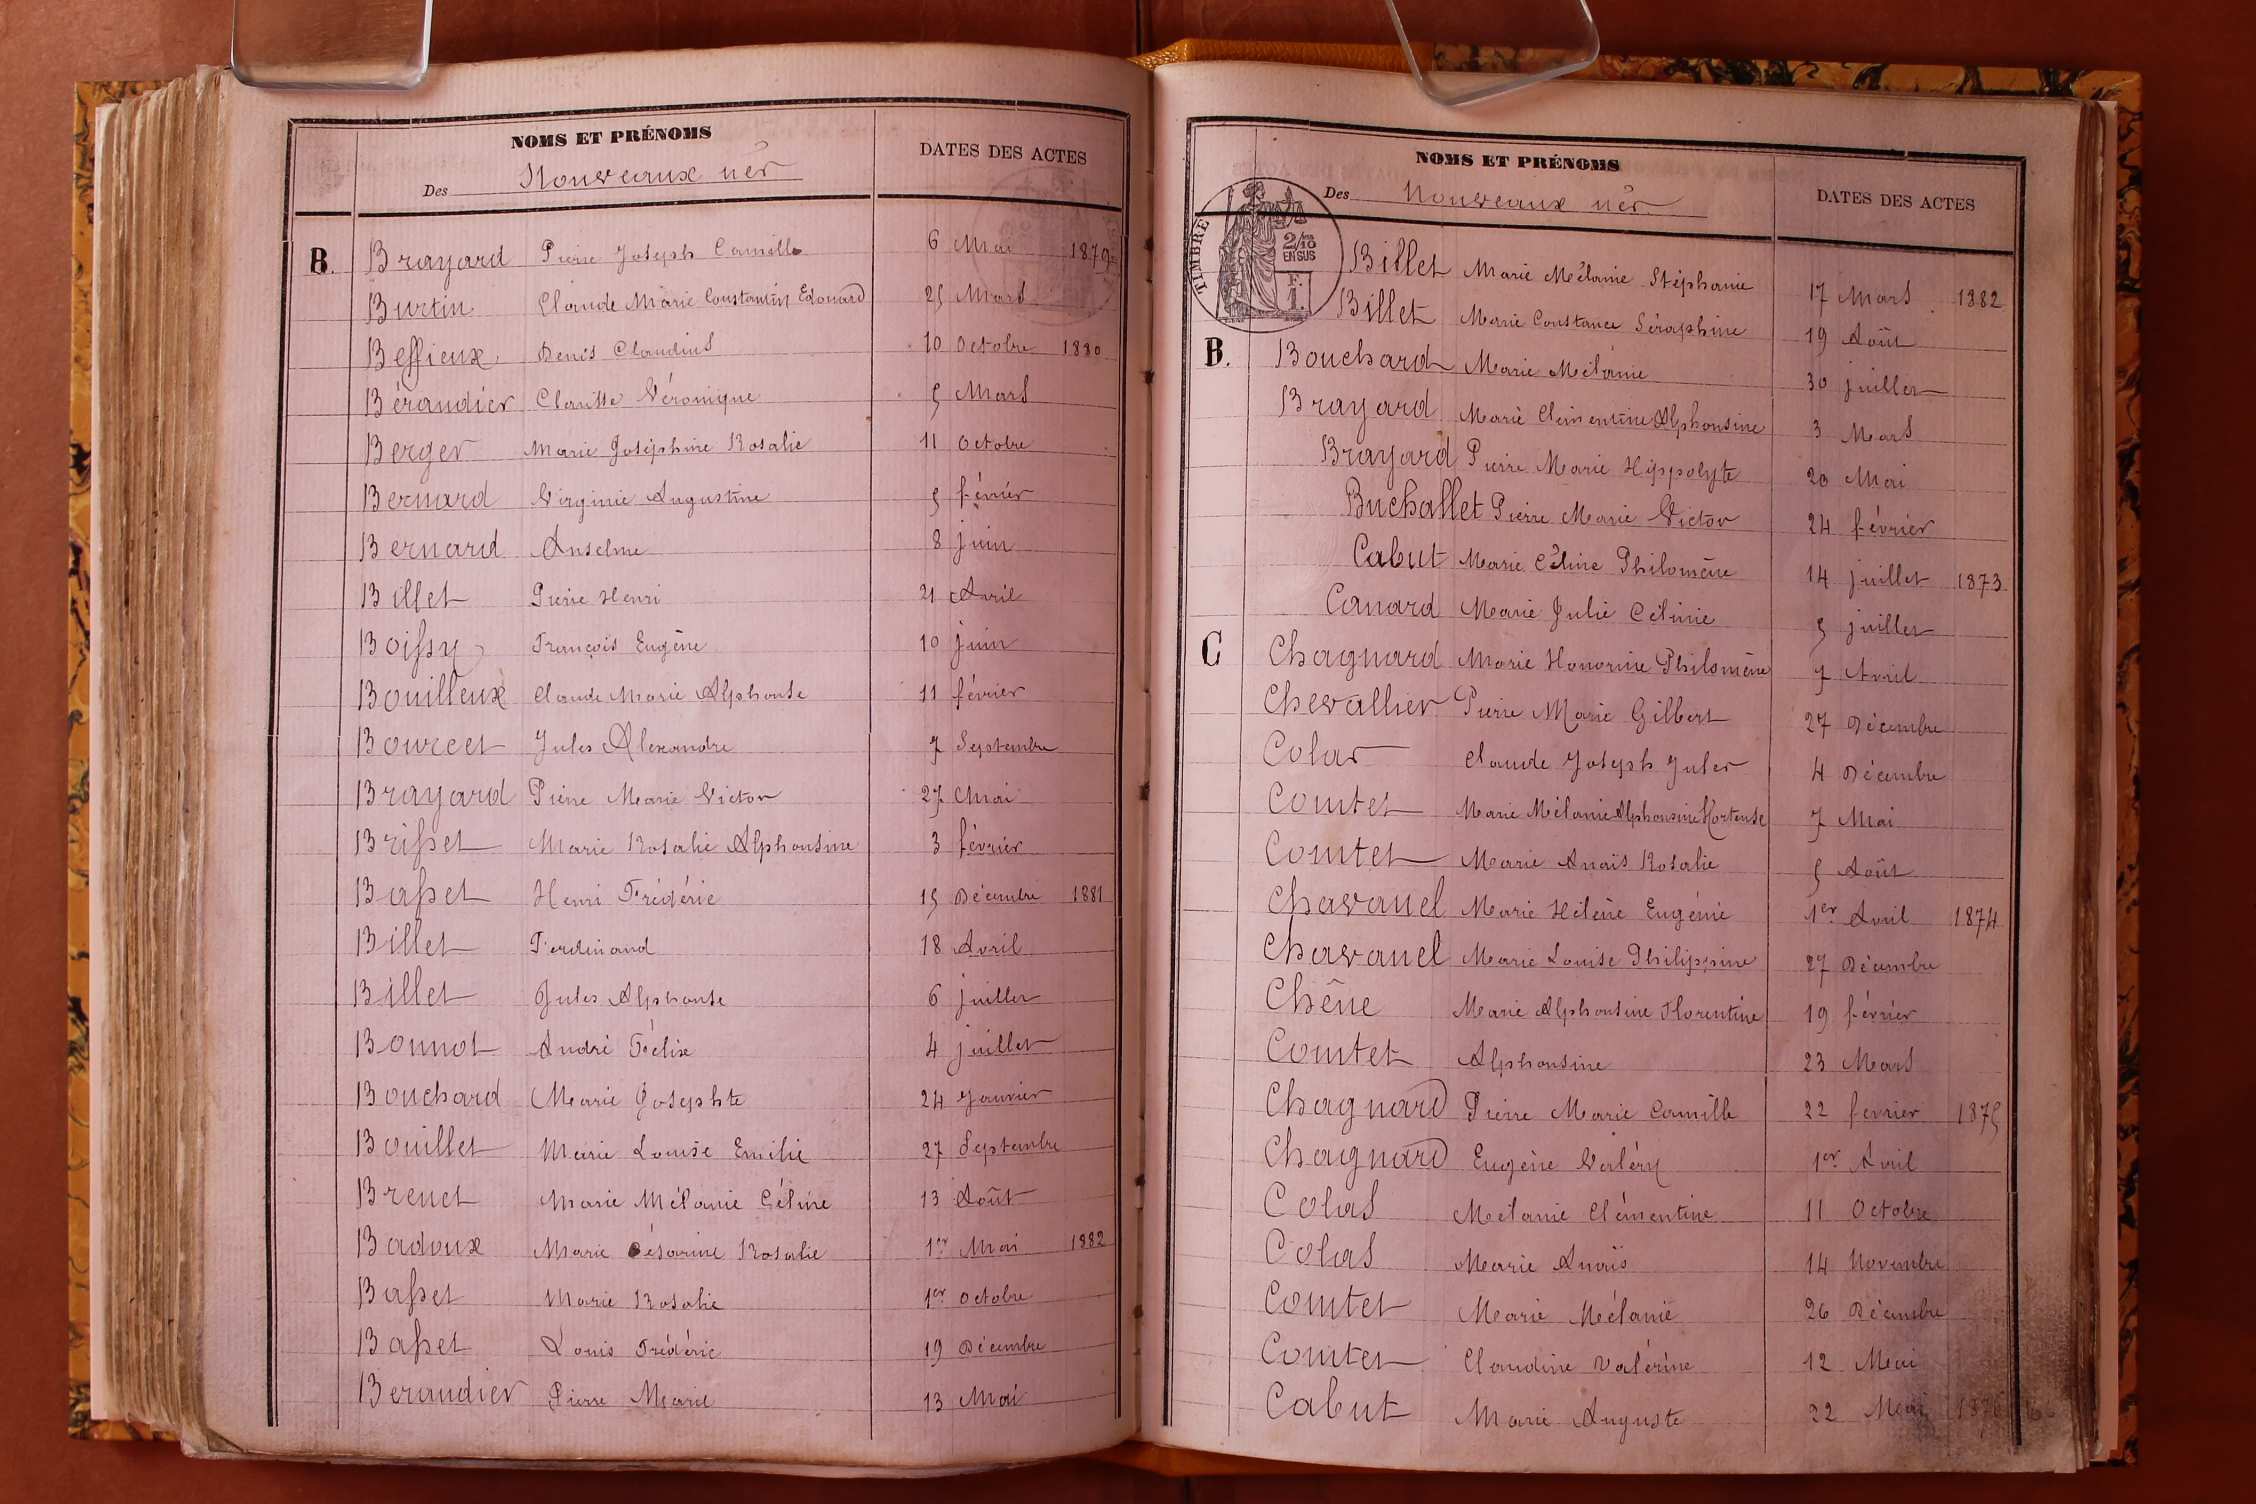 NOMS ET PRÉNOMS
DATES DES ACTES
Des Nouveaux nés
B. Brayard Pierre Joseph Camille 6 Mai 1879
Burtin Claude Marie Constantin Edouard 25 Mars
Beffieux Denis Claudius 10 Octobre 1880
Béraudier Clarisse Véronique 5 Mars
Berger Marie Joséphine Rosalie 11 Octobre
Bernard Virginie Augustine 5 février
Bernard Anselme 8 juin
Billet Pierre Henri 21 Avril
Boissy François Eugène 10 juin
Bouilleux Claude Marie Alphonse 11 février
Bourcet Jules Alexandre 7 Septembre
Brayard Pierre Marie Victor 27 Mai
Brisset Marie Rosalie Alphonsine 3 février
Basset Henri Frédéric 15 Décembre 1881
Billet Ferdinand 18 Avril
Billet Jules Alphonse 6 juillet
Bonnot André Félix 4 juillet
Bouchard Marie Josephte 24 Janvier
Bouillet Marie Louise Emilie 27 Septembre
Brenet Marie Mélanie Céline 13 Août
Badoux Marie Césarine Rosalie 1er Mai 1882
Basset Marie Rosalie 1er Octobre
Basset Louis Frédéric 19 Décembre
Beraudier Pierre Marie 13 Mai
NOMS ET PRÉNOMS
DATES DES ACTES
Des Nouveaux nés
TIMBRE
2/10
EN SUS
F.
1.
Billet Marie Mélanie Stéphanie 17 Mars 1882
Billet Marie Constance Séraphine 19 Août
B. Bouchard Marie Mélanie 30 juillet
Brayard Marie Clémentine Alphonsine 3 Mars
Brayard Pierre Marie Hippolyte 20 Mai
Buchallet Pierre Marie Victor 24 février
Cabut Marie Céline Philomène 14 juillet 1873
Canard Marie Julie Célinie 5 juillet
C Chagnard Marie Honorine Philomène 7 Avril
Chevallier Pierre Marie Gilbert 27 Décembre
Colas Claude Joseph Jules 4 Décembre
Comtet Marie Mélanie Alphonsine Hortense 7 Mai
Comtet Marie Anaïs Rosalie 5 Août
Chavanel Marie Hélène Eugénie 1er Avril 1874
Chavanel Marie Louise Philippine 27 Décembre
Chêne Marie Alphonsine Florentine 19 février
Comtet Alphonsine 23 Mars
Chagnard Pierre Marie Camille 22 fevrier 1875
Chagnard Eugène Valéry 1er Avril
Colas Mélanie Clémentine 11 Octobre
Colas Marie Anaïs 14 Novembre
Comtet Marie Mélanie 26 Décembre
Comtet Claudine Valérine 12 Mai
Cabut Marie Auguste 22 Mai 1876